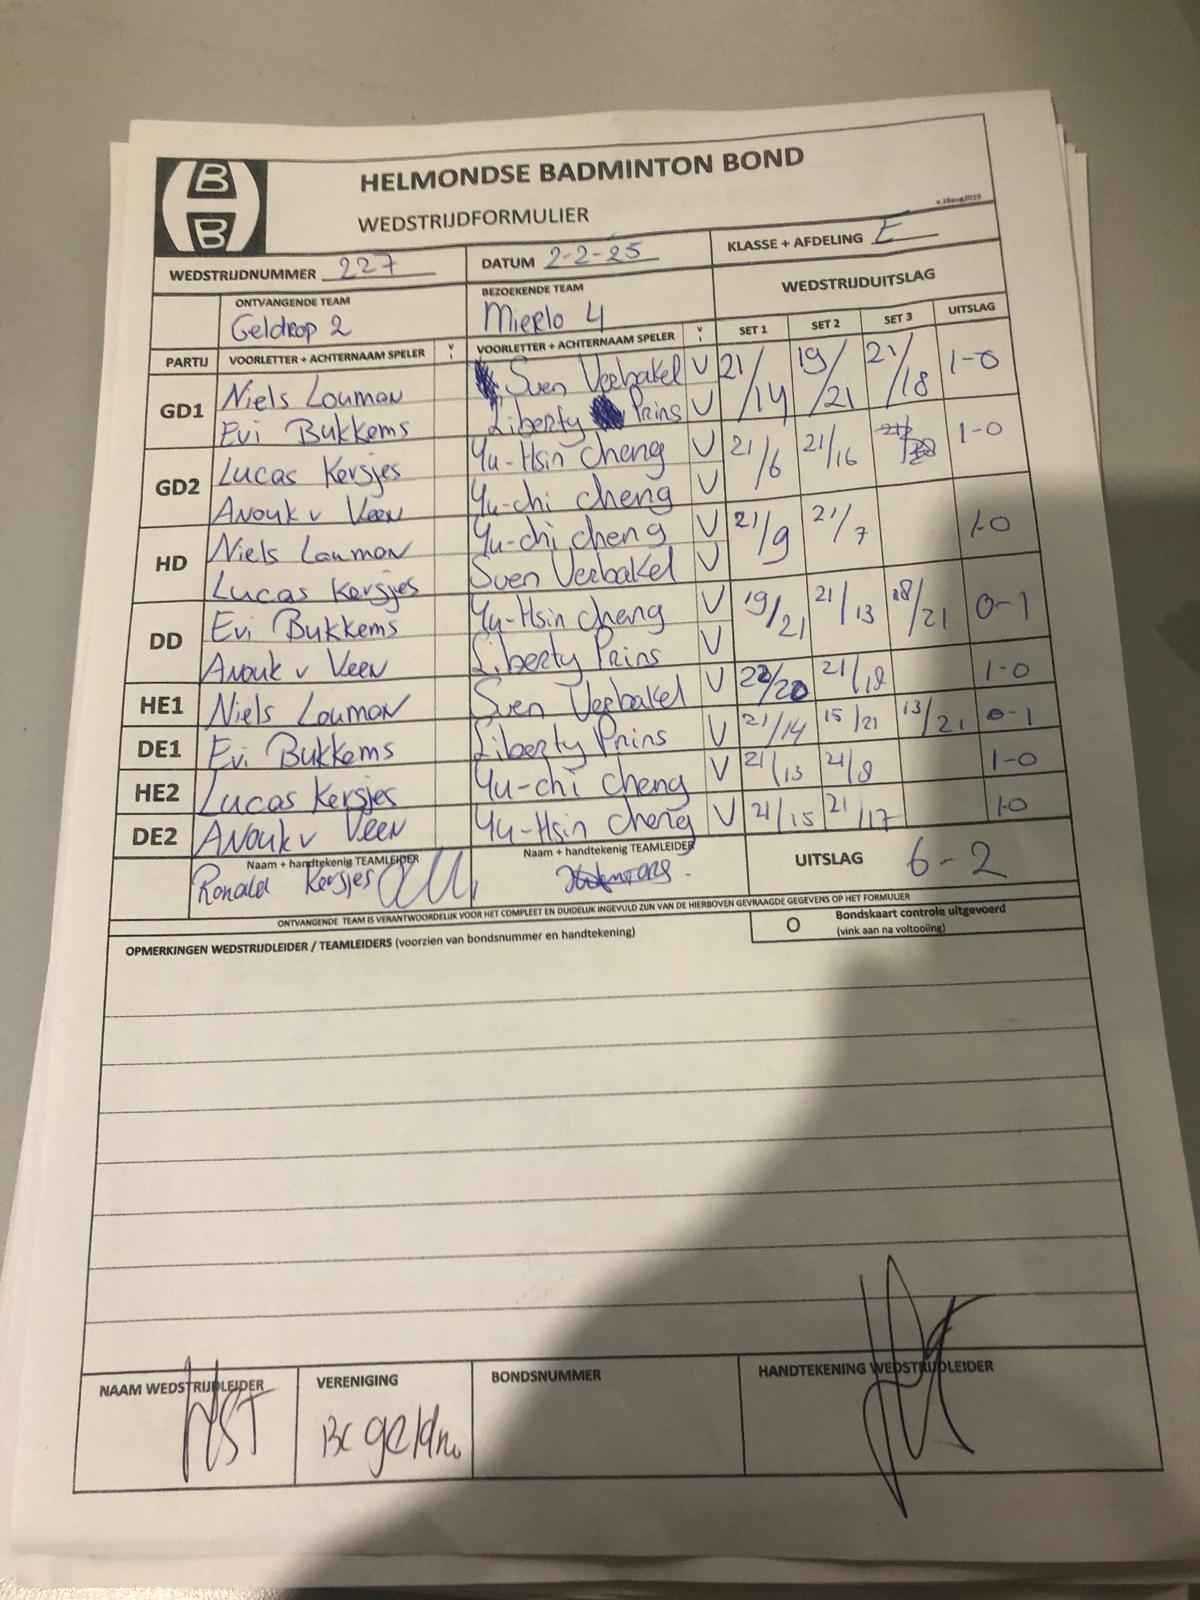 HELMONDSE BADMINTON BOND
WEDSTRIJDFORMULIER
v.18aug2019
WEDSTRIJDNUMMER 227 DATUM 2-2-25 KLASSE + AFDELING E
ONTVANGENDE TEAM BEZOEKENDE TEAM WEDSTRIJDUITSLAG
Geldrop 2 Mierlo 4
PARTIJ VOORLETTER + ACHTERNAAM SPELER V VOORLETTER + ACHTERNAAM SPELER V SET 1 SET 2 SET 3 UITSLAG
GD1 Niels Louman Sven Verbakel V 21/14 19/21 21/18 1-0
Evi Bukkems Liberty Prins V
GD2 Lucas Kersjes Yu-Hsin cheng V 21/6 21/16 1-0
Anouk v Veen Yu-chi cheng V
HD Niels Louman Yu-chi cheng V 21/9 21/7 1-0
Lucas Kersjes Sven Verbakel V
DD Evi Bukkems Yu-Hsin cheng V 19/21 21/13 18/21 0-1
Anouk v Veen Liberty Prins V
HE1 Niels Louman Sven Verbakel V 22/20 21/18 1-0
DE1 Evi Bukkems Liberty Prins V 21/14 15/21 13/21 0-1
HE2 Lucas Kersjes Yu-chi cheng V 21/13 21/8 1-0
DE2 Anouk v Veen Yu-Hsin cheng V 21/15 21/17 1-0
Naam + handtekenig TEAMLEIDER Naam + handtekenig TEAMLEIDER UITSLAG 6-2
Ronald Kersjes
ONTVANGENDE TEAM IS VERANTWOORDELIJK VOOR HET COMPLEET EN DUIDELIJK INGEVULD ZIJN VAN DE HIERBOVEN GEVRAAGDE GEGEVENS OP HET FORMULIER
OPMERKINGEN WEDSTRIJDLEIDER / TEAMLEIDERS (voorzien van bondsnummer en handtekening) O Bondskaart controle uitgevoerd
(vink aan na voltooiing)
NAAM WEDSTRIJDLEIDER VERENIGING BONDSNUMMER HANDTEKENING WEDSTRIJDLEIDER
BC geldro